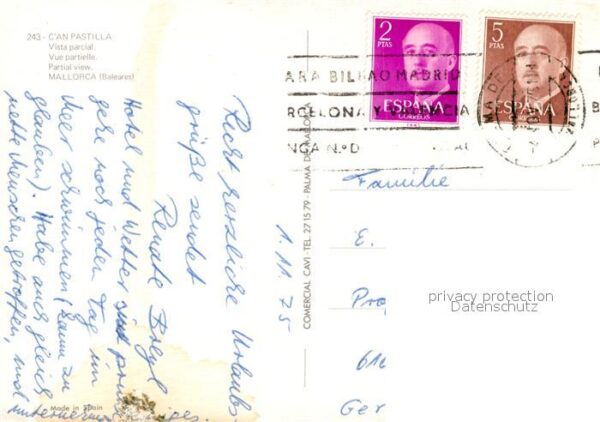 243 - C'AN PASTILLA
Vista parcial.
Vue partielle.
Partial view.
MALLORCA (Baleares)
2
PTAS
ESPAÑA
CORREOS
5
PTAS
ESPAÑA
CORREOS
ARA BILBAO MADRID
RCELONA Y VALENCIA
NGA N.º D
COMERCIAL CAVI - TEL. 27 15 79 - PALMA DE MALLORCA
1.11.75
Recht herzliche Urlaubs
grüße sendet
Renate
Hotel und Wetter sind prima
gere noch jeden Tag im
Meer schwimmen (kaum zu
glauben). Habe auch gleich
nette Menschen getroffen, und
Familie
E.
616
Ger
privacy protection
Datenschutz
Made in Spain